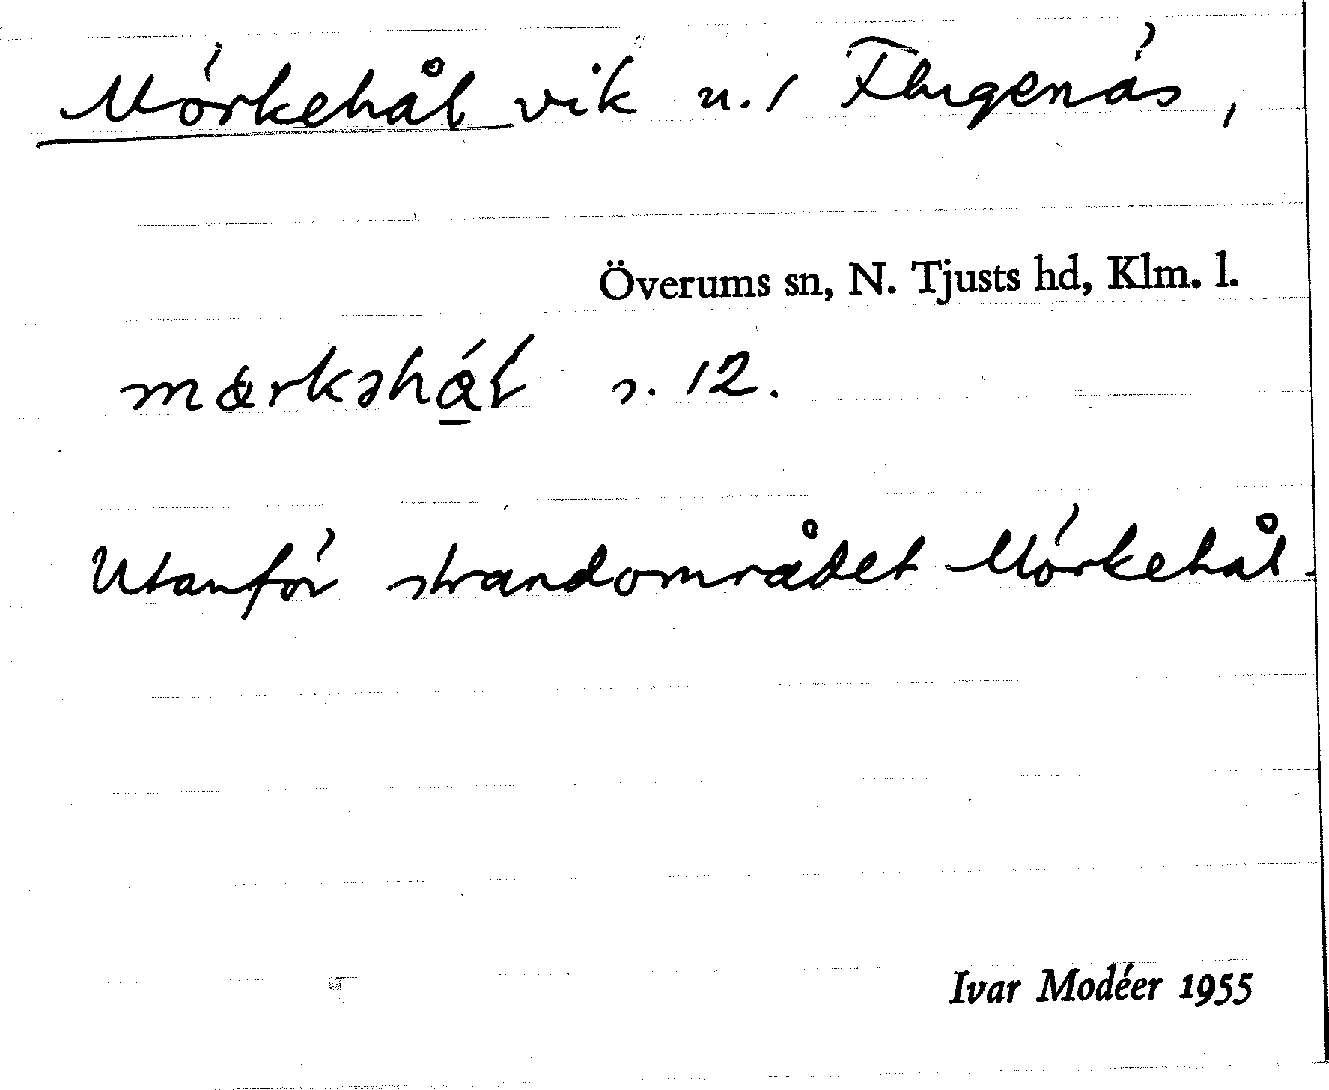 Mörkehål vik u. / Flugenäs,
Överums sn, N. Tjusts hd, Klm. l.
mɶrkəhál s. 12.
Utanför strandområdet Mörkehål.
Ivar Modéer 1955